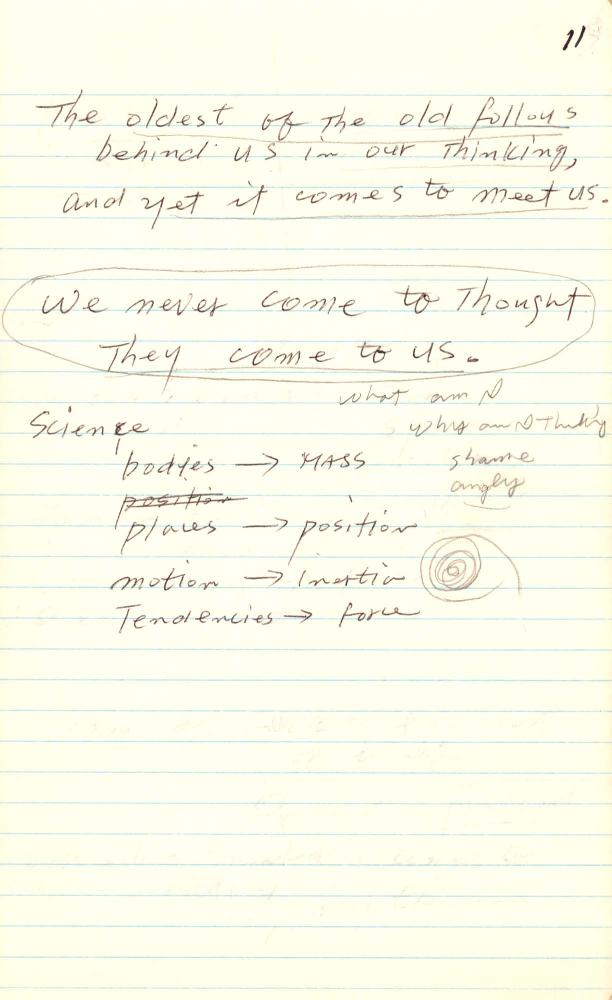 11
The oldest of the old follows
behind us in our Thinking,
and yet it comes to meet us.
We never come to Thought
They come to us.
what am I
Why am I Thinking
Science
bodies → MASS
shame
angry
position
places → position
motion → inertia
Tendencies → force